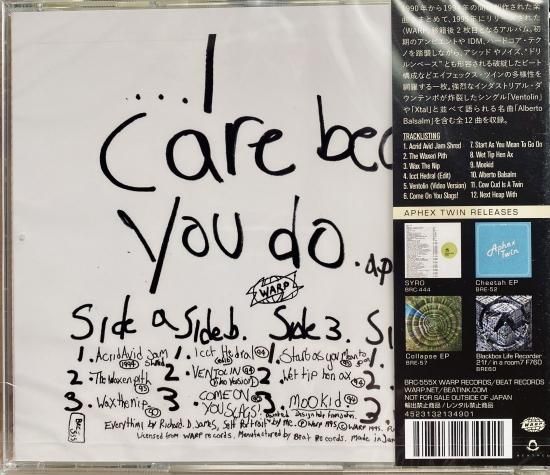 ...I
Care bec
You do.
.Ap
WARP
Side a
1. Acrid Avid Jam Shred (1994)
2. The Waxen pith
3. Wax the nip
Side b.
1. Icct Hedral (edit) (94)
2. VENTOLIN (video Version)
3. COME ON YOU SLAGS!
Side 3.
1. Start as you mean to go on
2. Wet tip hen ax (94)
3. Mookid (94)
Si
1.
2.
3.
BRC-555
Everything by Richard. D. James, Self Portrait by me. ℗Warp 1995. ©Warp 1995.
Licensed from WARP records. Manufactured by Beat Records. Made in Japan
1990年から1994年の間に制作された楽
曲をまとめて、1995年にリリースされた
〈WARP〉移籍後2枚目となるアルバム。初
期のアンビエントや IDM、ハードコア・テク
ノを踏襲しながら、アシッドやノイズ、"ド
リルンベース"とも形容される破綻したビート
構成などエイフェックス・ツインの多様性を
網羅する一枚。強烈なインダストリアル・ダ
ウンテンポが炸裂したシングル「Ventolin」
や「Xtal」と並べて語られる名曲「Alberto
Balsalm」を含む全12曲を収録。
TRACKLISTING
1. Acrid Avid Jam Shred
2. The Waxen Pith
3. Wax The Nip
4. Icct Hedral (Edit)
5. Ventolin (Video Version)
6. Come On You Slags!
7. Start As You Mean To Go On
8. Wet Tip Hen Ax
9. Mookid
10. Alberto Balsalm
11. Cow Cud Is A Twin
12. Next Heap With
APHEX TWIN RELEASES
Aphex Twin
SYRO
BRC-444
Cheetah EP
BRE-52
Collapse EP
BRE-57
Blackbox Life Recorder
21f / in a room7 F760
BRE60
BRC-555X WARP RECORDS/BEAT RECORDS
WARP.NET/BEATINK.COM
NOT FOR SALE OUTSIDE OF JAPAN
輸出禁止商品 / レンタル禁止商品
4523132134901
WARP
BEATINK